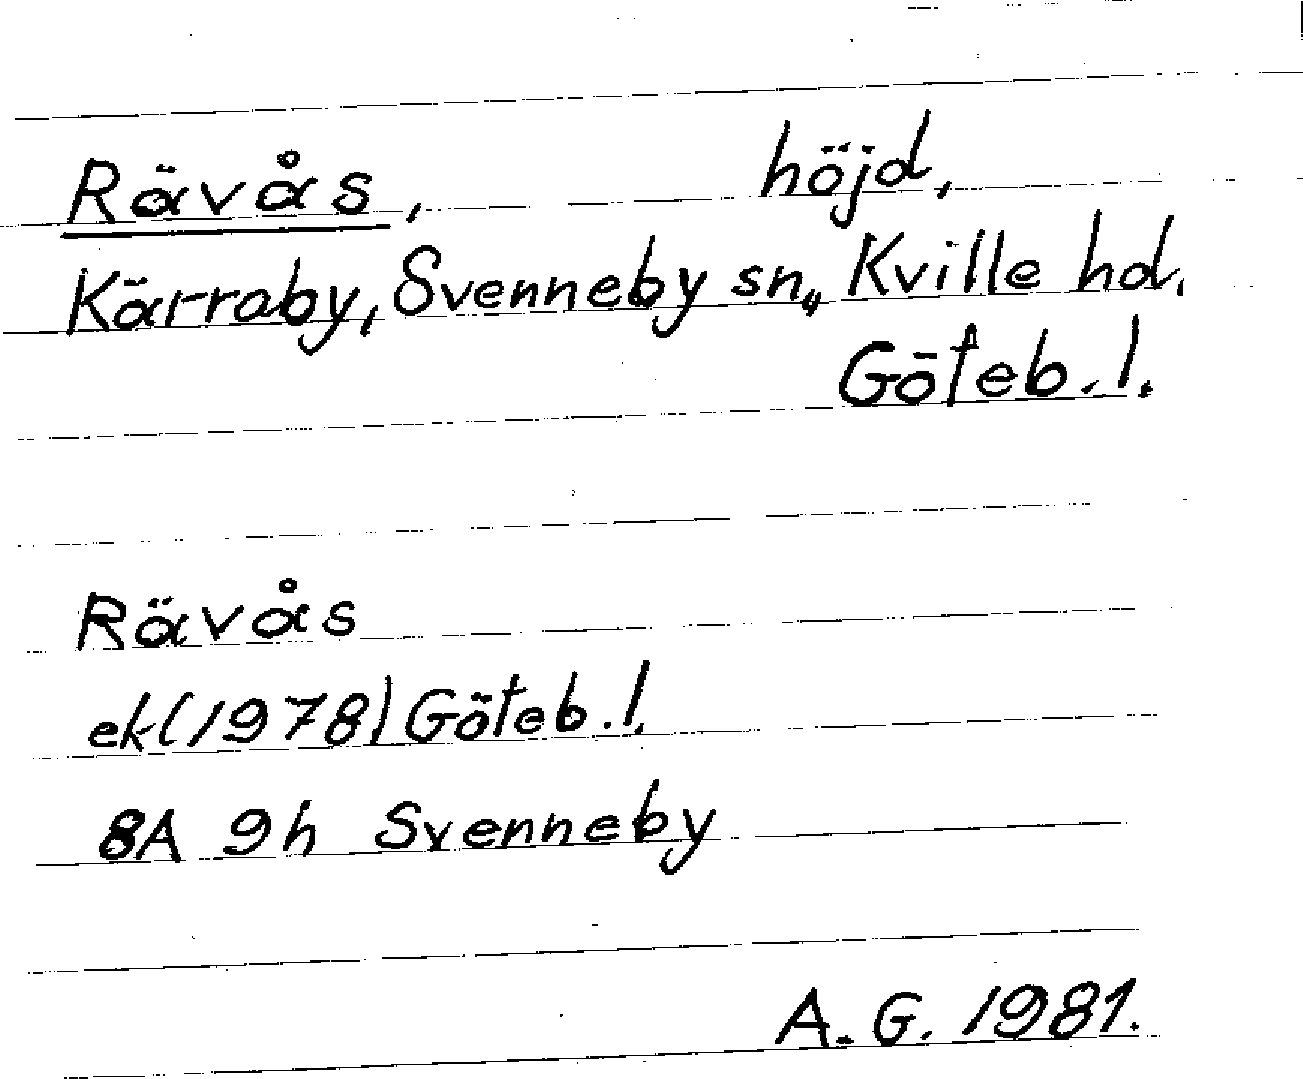 Rävås, höjd,
Kärraby, Svenneby sn, Kville hd,
Göteb. l.
Rävås
ek (1978) Göteb. l.
8A 9h Svenneby
A. G. 1981.